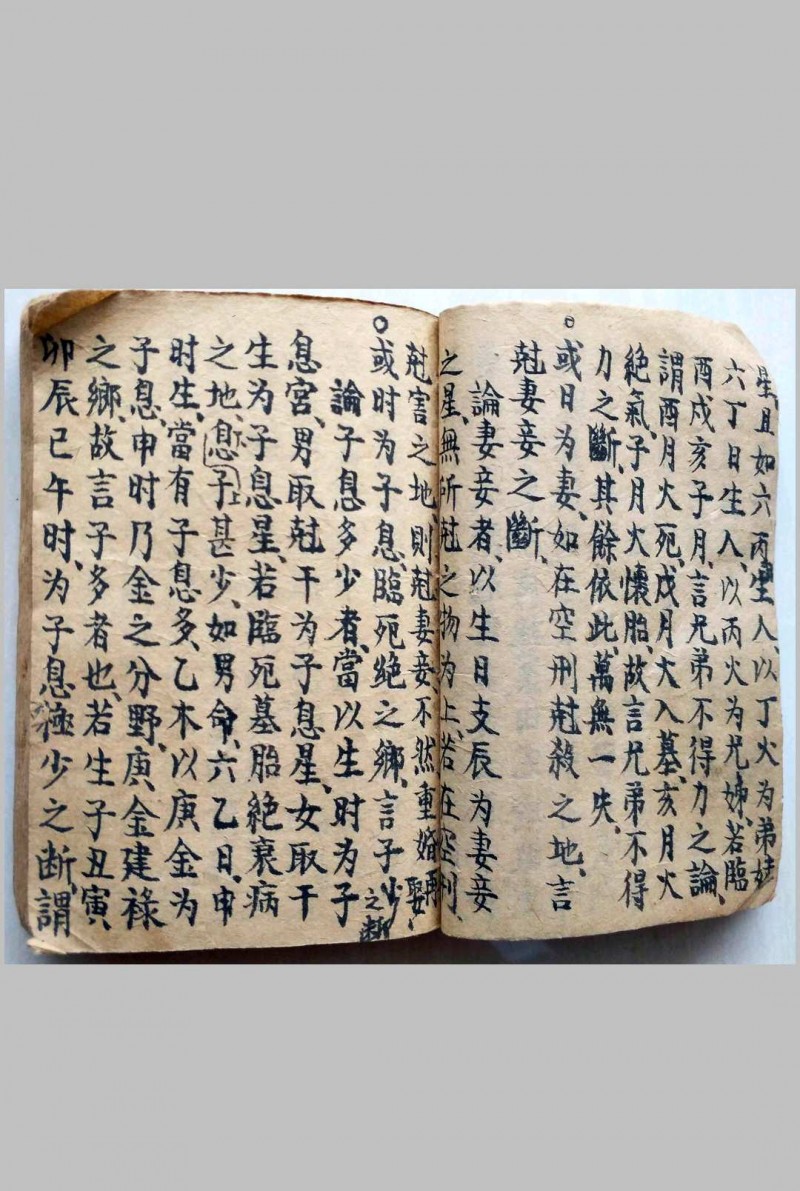 星、且如六丙生人、以丁火为弟妹
六丁日生人、以丙火为兄姊、若臨
酉戍亥子月、言兄弟不得力之論、
謂酉月火死、戍月火入墓、亥月火
絕氣、子月火懷胎、故言兄弟不得
力之斷、其餘依此、萬無一失、
○或日为妻、如在空刑尅殺之地、言
尅妻妾之斷、
論妻妾者、以生日支辰为妻妾
之星、無所尅之物为上、若在空刑、
尅害之地、則尅妻妾、不然重婚再娶、
○或时为子息、臨死绝之鄉、言子少之断
論子息多少者、當以生时为子
息宮、男取尅干为子息星、女取干
生为子息星、若臨死墓胎絕衰病
之地、息子甚少、如男命、六乙日、申
时生、當有子息多、乙木以庚金为
子息、申时乃金之分野、庚金建祿
之鄉、故言子多者也、若生子丑寅、
卯辰巳午时、为子息極少之断、謂